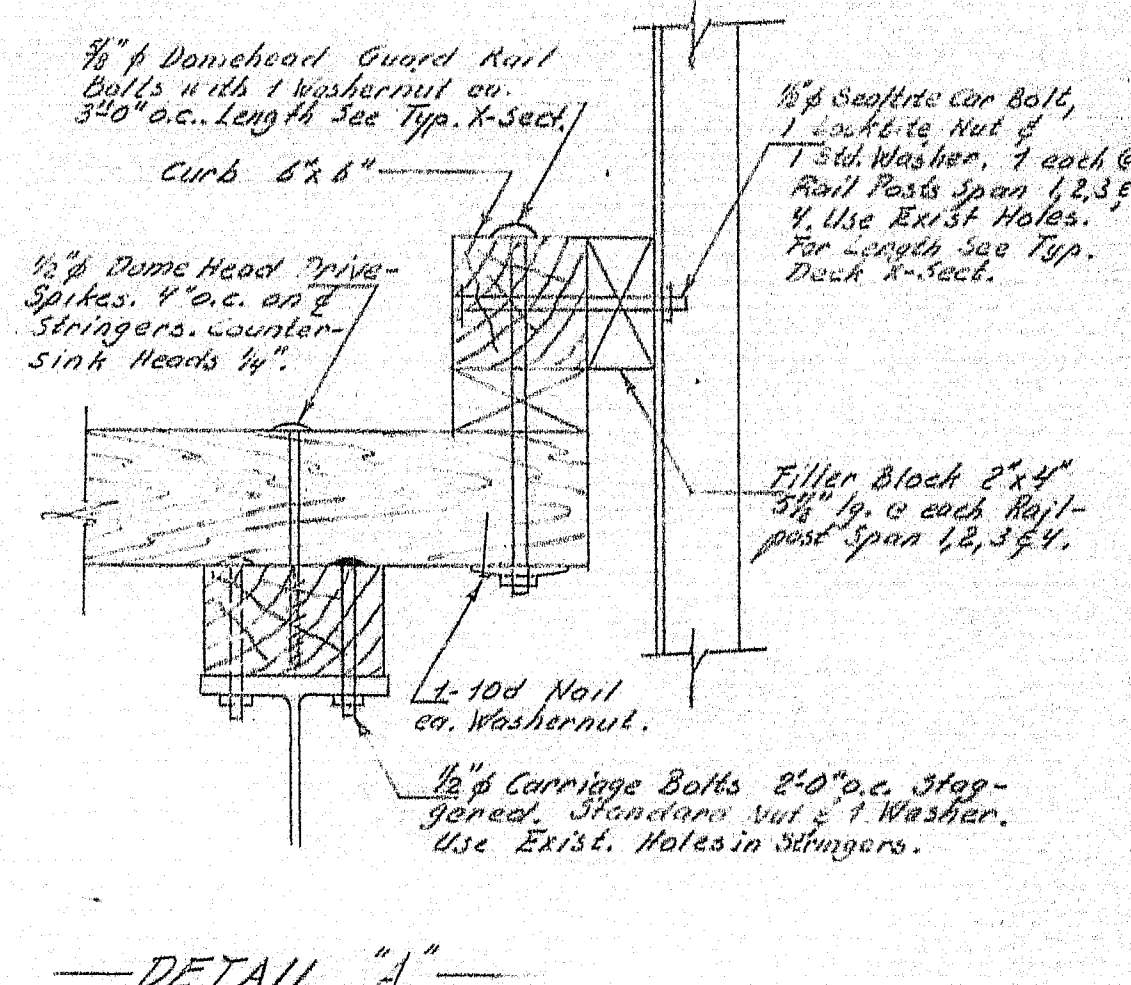 5/8" ϕ Domehead Guard Rail
Bolts with 1 Washernut ea.
3'-0" o.c.. Length See Typ. X-Sect.
Curb 6"x 6"
1/2" ϕ Dome Head Drive-
Spikes. 4" o.c. on ₵
Stringers. Counter-
sink Heads 1/4".
ϕ Sealtite Car Bolt,
1 Locktite Nut &
1 Std. Washer. 1 each @
Rail Posts Span 1, 2, 3 &
4. Use Exist Holes.
For Length See Typ.
Deck X-Sect.
Filler Block 2"x 4"
5 1/2" lg. @ each Rail-
post Span 1, 2, 3 & 4.
1- 10d Nail
ea. Washernut.
1/2" ϕ Carriage Bolts 2'-0" o.c. Stag-
gered. Standard Nut & 1 Washer.
Use Exist. Holes in Stringers.
DETAIL "A"